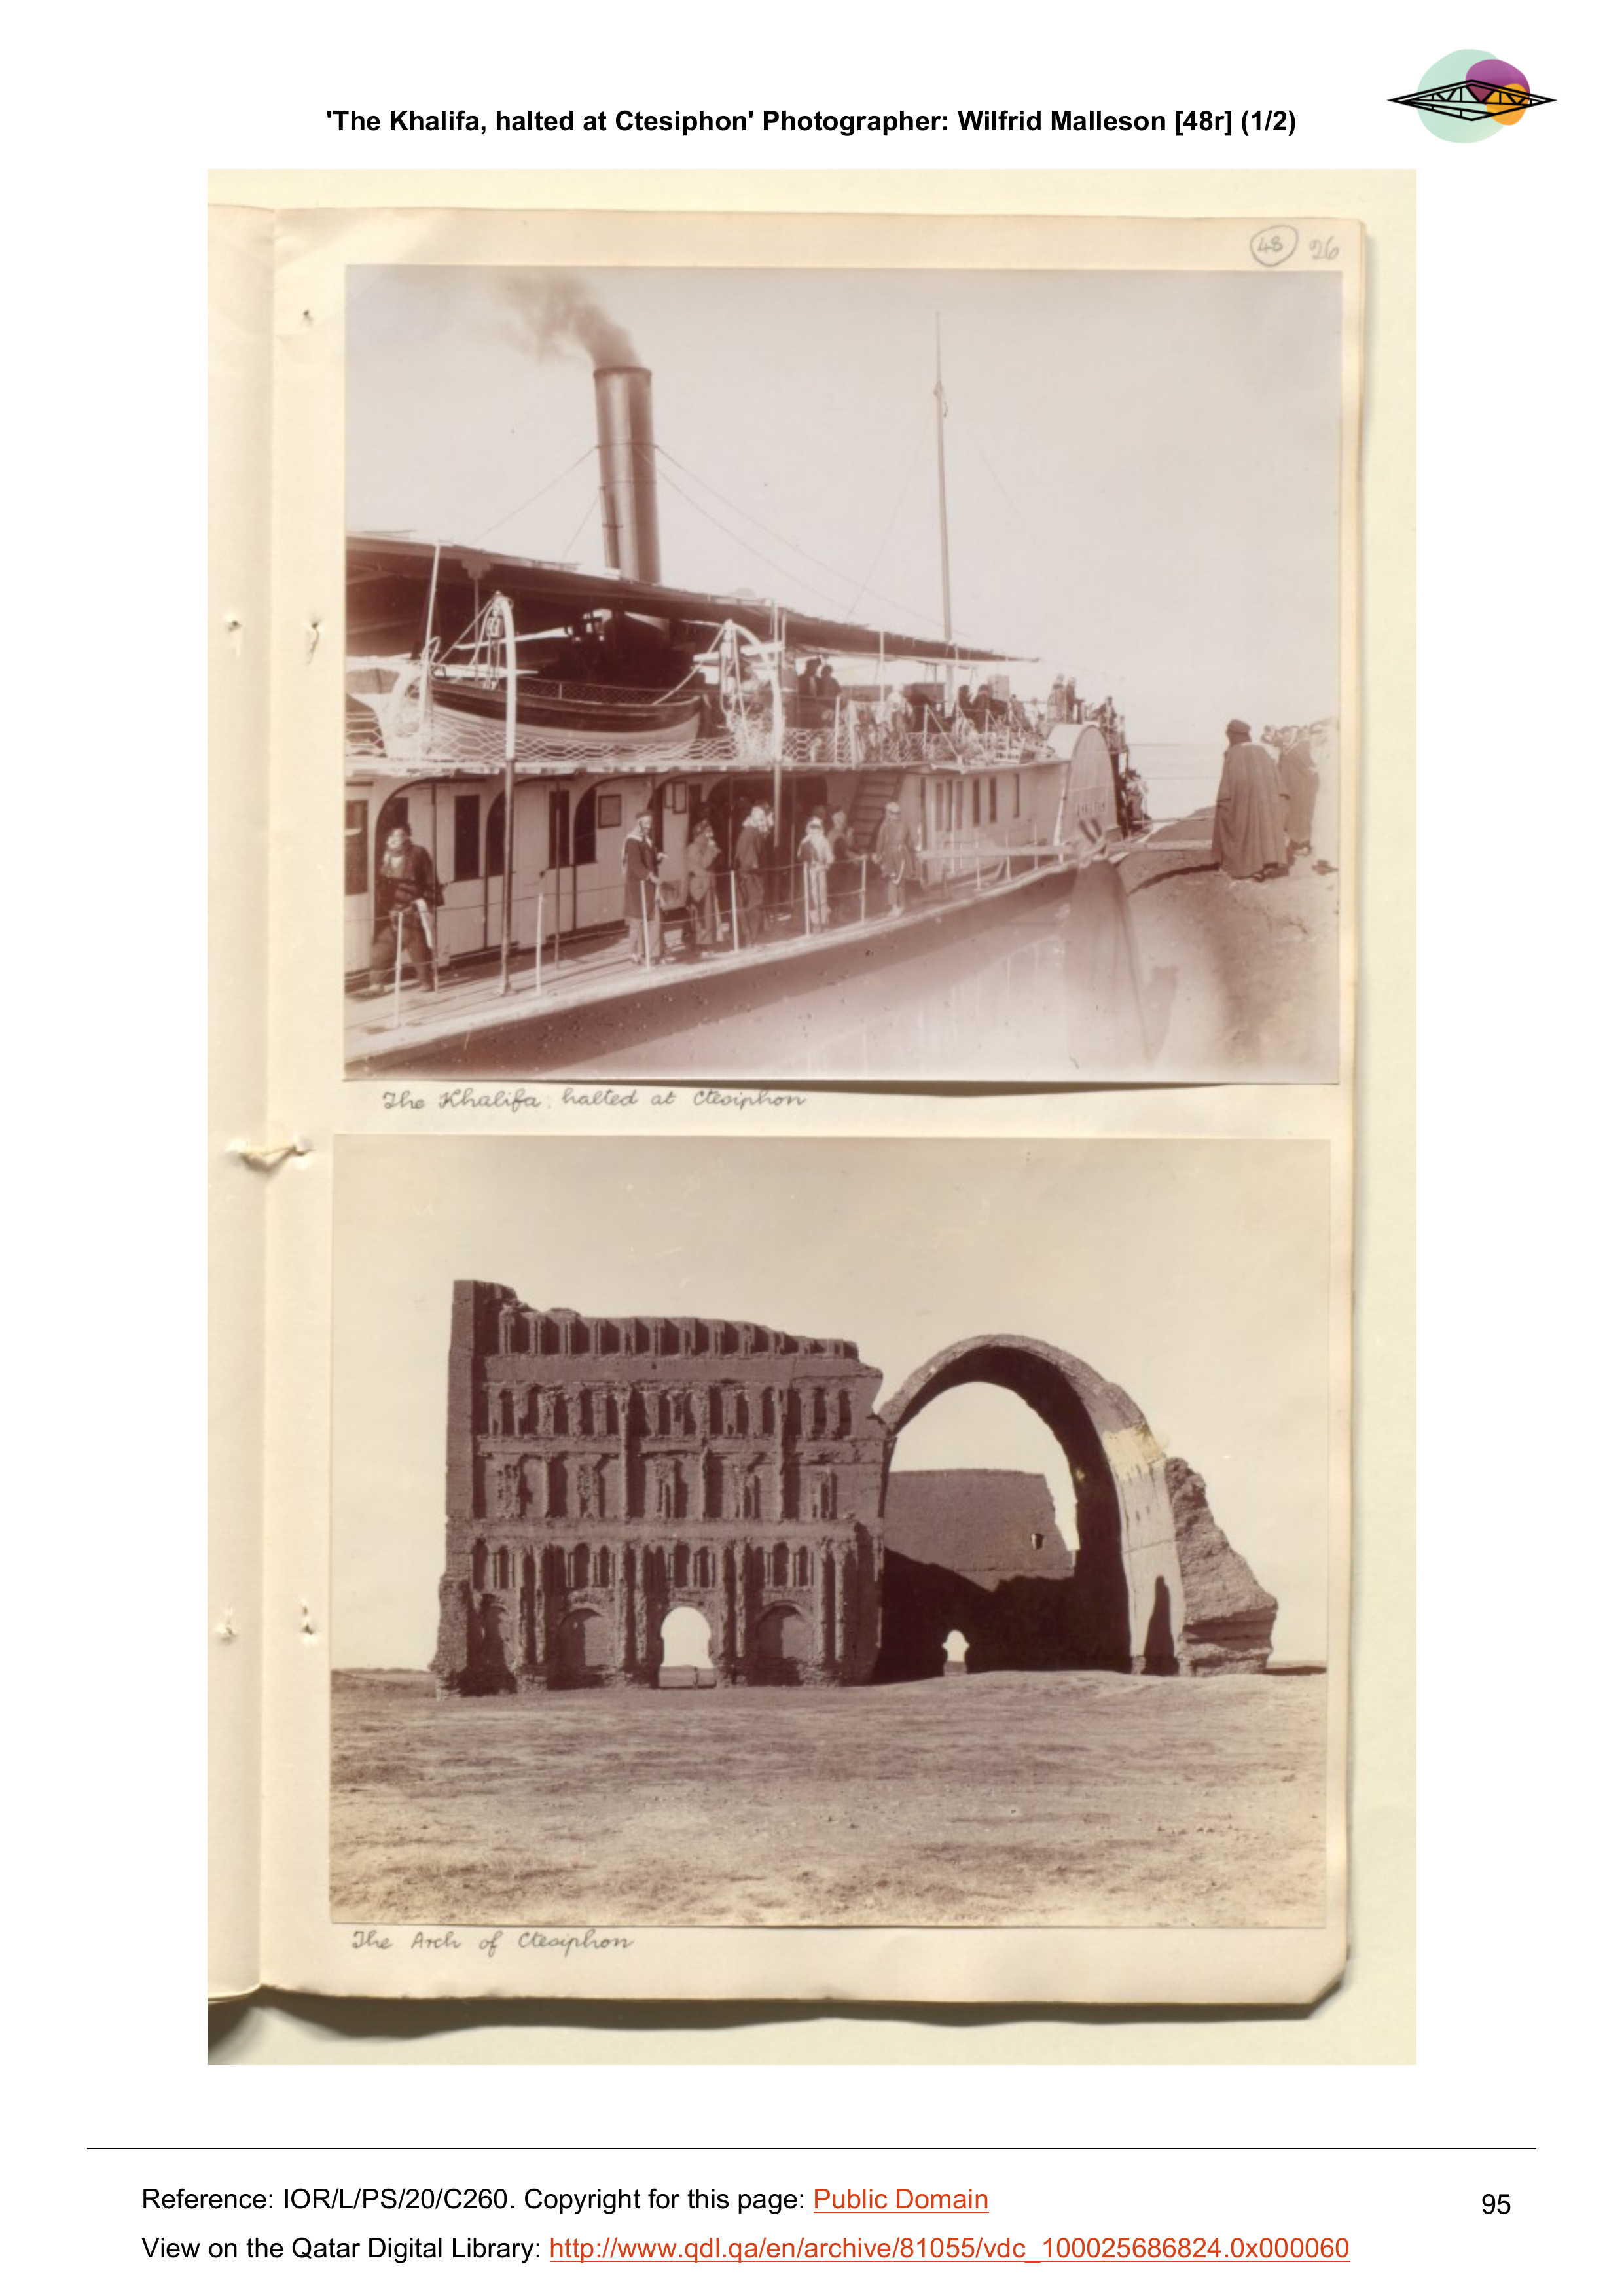 'The Khalifa, halted at Ctesiphon' Photographer: Wilfrid Malleson [48r] (1/2)
48 26
The Khalifa, halted at Ctesiphon
The Arch of Ctesiphon
Reference: IOR/L/PS/20/C260. Copyright for this page: Public Domain
95
View on the Qatar Digital Library: http://www.qdl.qa/en/archive/81055/vdc_100025686824.0x000060